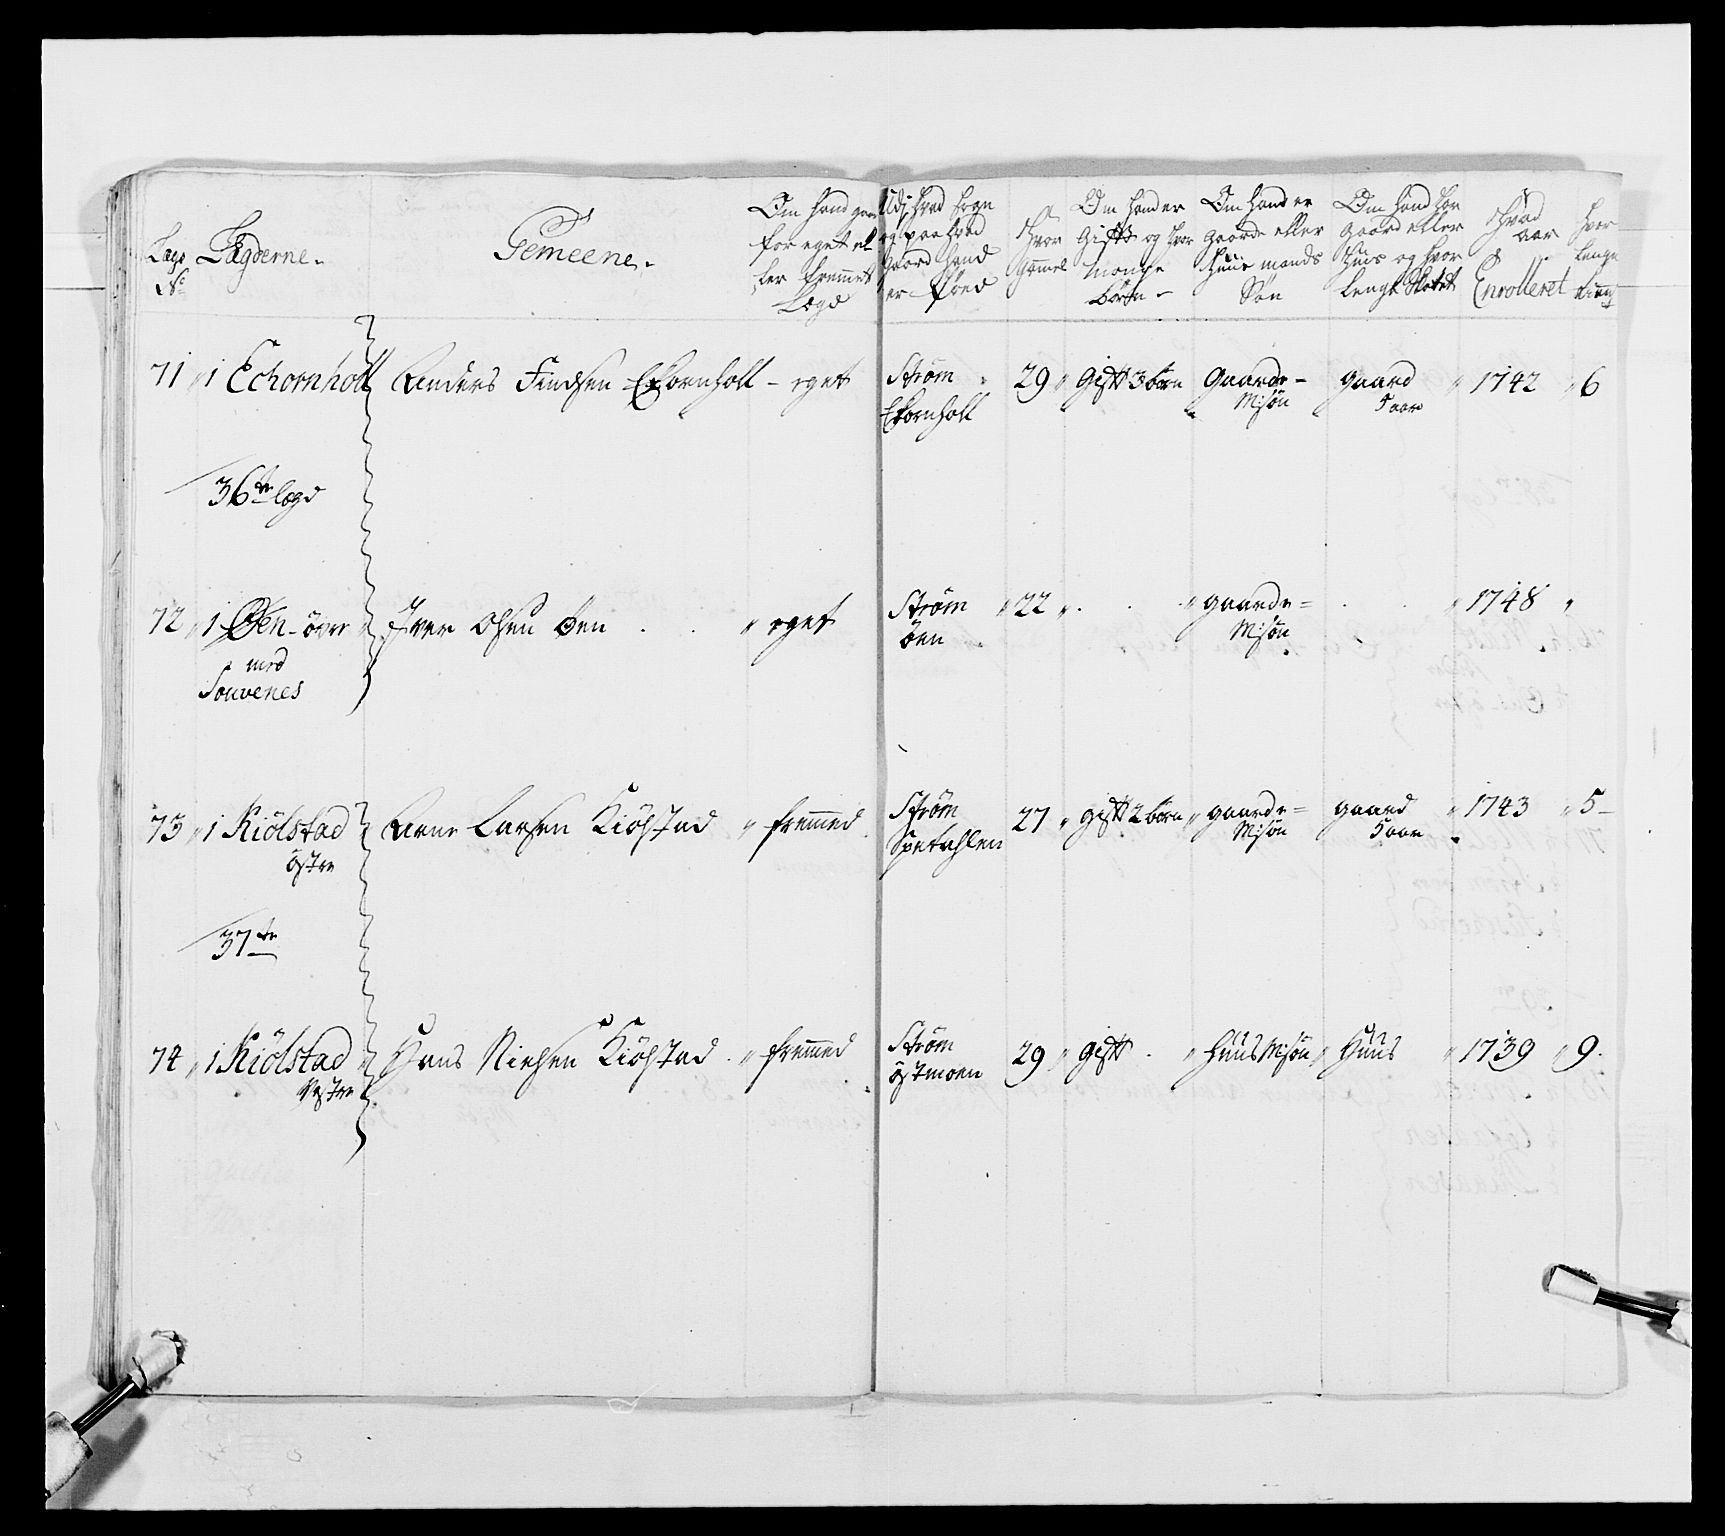 Lægs No
Lægderne.
Gemeene.
Om hand gaar for eget eller fremmet Lægd
Udj hvad Sogn og paa hvad Gaard hand er föed
Hvor gammel
Om hand er Gift og hvor mange börn
Om hand er Gaard eller Huus mands Sön
Om hand har Gaard eller Huus og hvor lenge
Hvad aar Enrolleret
Hvor lenge
71 " 1 Echornholt Anders Findsen Ekornholt - eget Ström Ekornholt 29 " Gift 3 börn Gaarde=Mſön gaard 5 aar " 1742 " 6
36te lægd
72 " 1 Øen - övre med Souvenes " Iver Olsen öen . . " eget Ström öen " 22 " . . " gaarde=Mſön . . " 1748 "
73 " 1 Kiölstad östre " Arne Larsen Kiölstad " fremmed Ström Spetahlen 27 " gift 2 börn " gaarde=Mſön gaard 5 aar " 1743 " 5 -
37te
74 " 1 Kiölstad Vestre " Hans Nielsen Kiölstad . " fremmed Ström östmoen 29 " gift . " Huus Mſön " Huus " 1739 " 9.